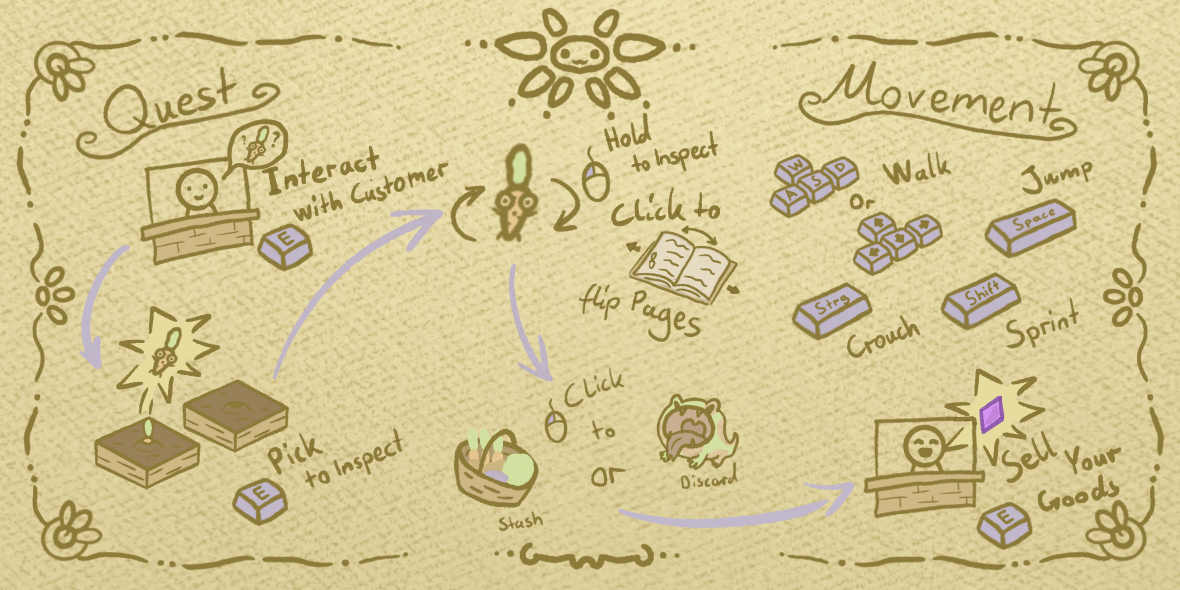 Quest
Movement
? ?
Interact
with Customer
E
Hold
to Inspect
Click to
flip Pages
W
A S D
or
Walk
Jump
Space
Strg
Crouch
Shift
Sprint
Pick
to Inspect
E
Click
to
or
Stash
Discard
Sell Your
Goods
E